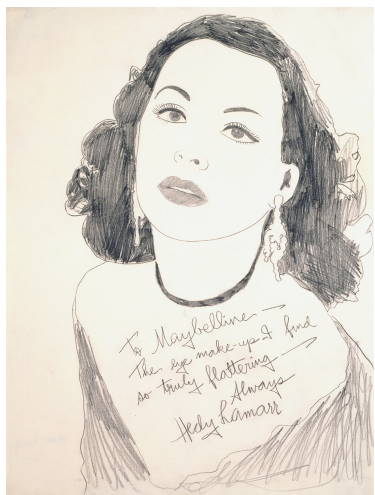 To Maybelline —
The eye make-up I find
so truly flattering —
Always
Hedy Lamarr